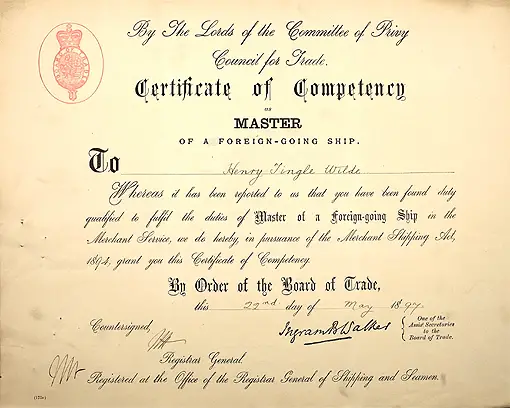 By The Lords of the Committee of Privy
Council for Trade.
Certificate of Competency
as
MASTER
OF A FOREIGN-GOING SHIP.
To Henry Tingle Wilde
Whereas it has been reported to us that you have been found duly
qualified to fulfil the duties of Master of a Foreign-going Ship in the
Merchant Service, we do hereby, in pursuance of the Merchant Shipping Act,
1894, grant you this Certificate of Competency.
By Order of the Board of Trade,
this 22nd day of May 1897.
Countersigned,
Ingram B Walker
One of the
Assist Secretaries
to the
Board of Trade.
Registrar General.
Registered at the Office of the Registrar General of Shipping and Seamen.